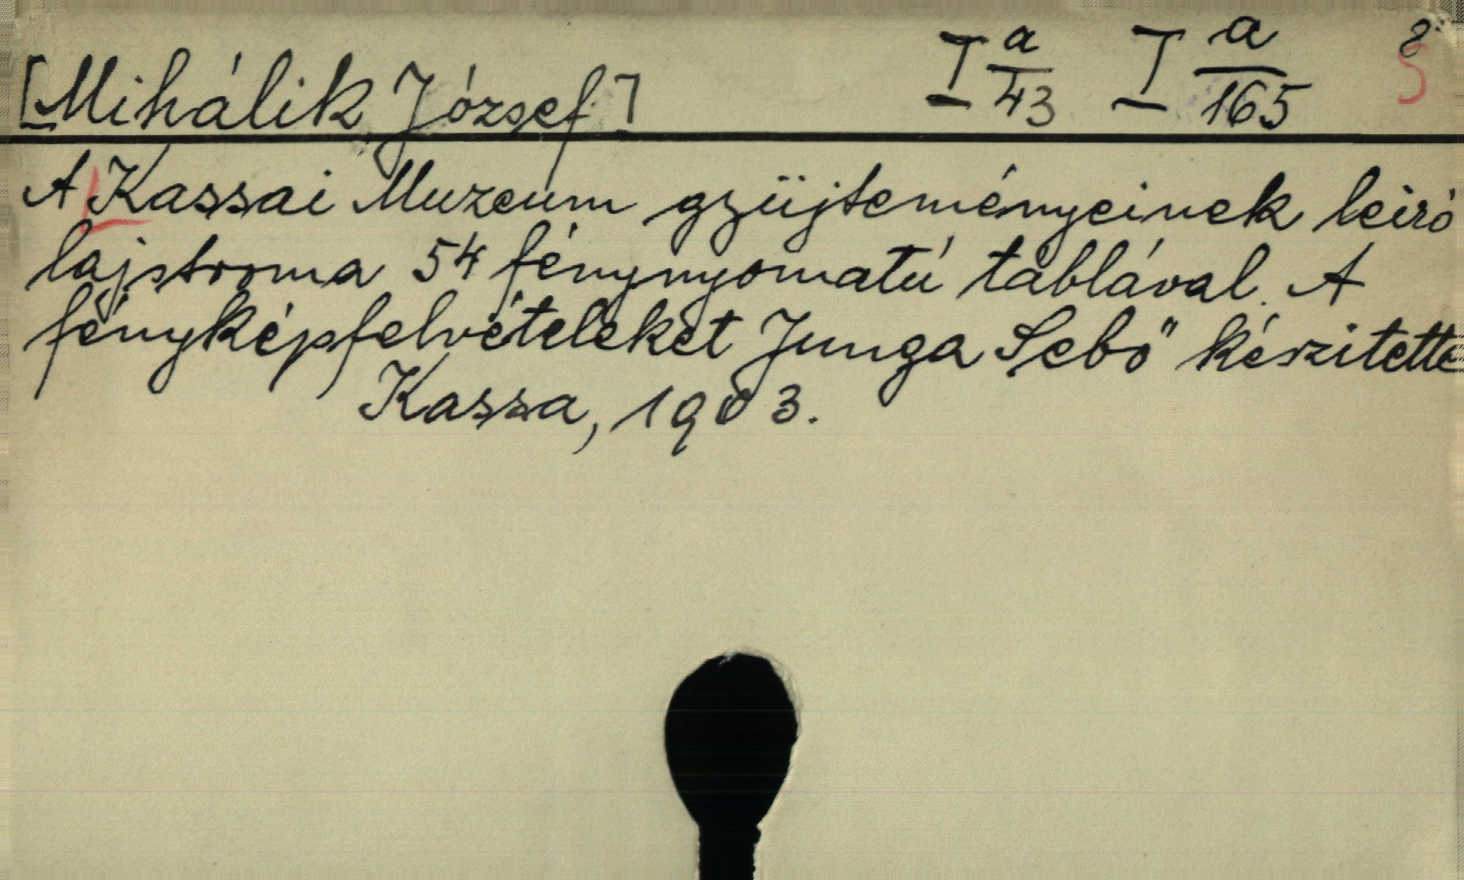 [Mihálik József] I a/43 I a/165 8°
A Kassai Muzeum gyüjteményeinek leiró
lajstroma 54 fénynyomatú táblával. A
fényképfelvételeket Junga Sebő készitette
Kassa, 1903.